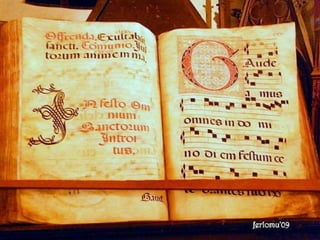 Offerenda, Exultabūt
sancti. Comunio, Jus
torum anime in ma.
In festo Om
nium
Sanctorum
Introi
tus.
Gaude
a mus
omnes in do mi
no di em festum ce
Jerlomu'09